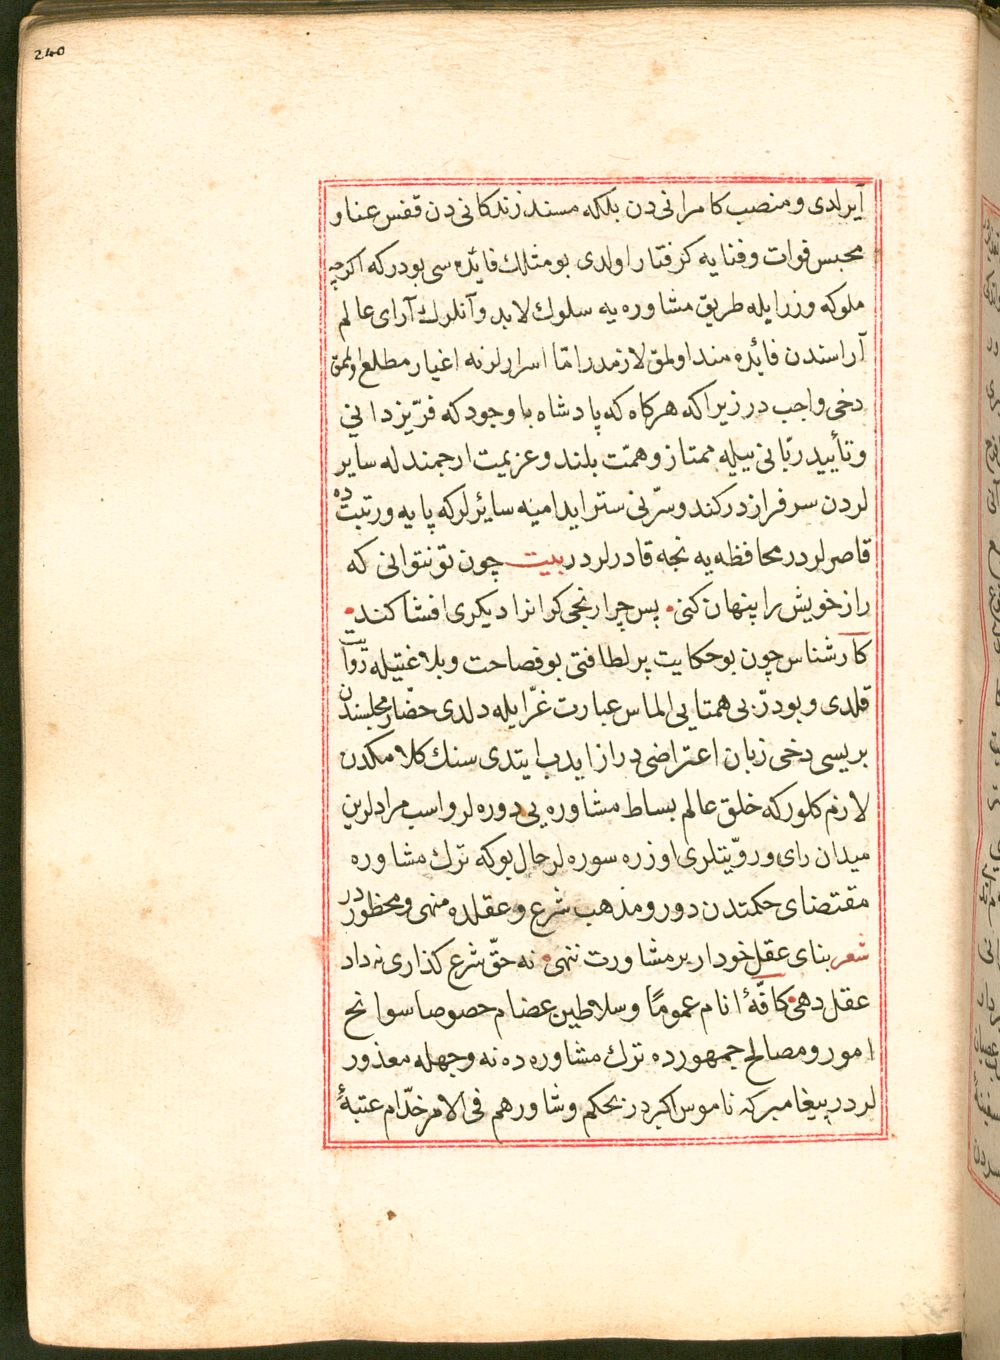 240
آیرلدی و منصب کامرانی دن بلکه مسند زندکانی دن قفس عنا و
محبس فوات و فنایه کرفتار اولدی بو مثلك فائده سی بودرکه اکرچه
ملوکه وزرا یله طریق مشاوره یه سلوك لابد و آنلرك آرای عالم
آراسندن فائده مند اولمق لازمدر امّا اسرارلرنه اغیار مطلع اولمق
دخی واجب در زیرا که هرکاه که پادشاه با وجود که فرّ یزدانی
و تأیید ربّانی بیله ممتاز و همّت بلند و عزیمت ارجمند له سایر
لردن سرفرازدر کندو سرّنی ستر ایدامیه سائرلر که پایه و رتبت ده
قاصرلردر محافظه یه نجه قادرلردر بیت چون تو نتوانی که
راز خویش را پنهان کنی • پس چرا رنجی کر انرا دیکری افشا کند •
کارشناس چون بو حکایت پر لطافتی بو فصاحت و بلاغتیله روایت
قلدی و بو درّ بی همتایی الماس عبارت غرّا یله دلدی حضّار مجلسندن
بریسی دخی زبان اعتراضی دراز ایدب ایتدی سنك کلامکدن
لازم کلور که خلق عالم بساط مشاوره یی دوره لر و اسب مرادلرین
میدان رای و رویّتلری اوزره سوره لر حال بو که ترك مشاوره
مقتضای حکمتدن دور و مذهب شرع و عقلده منهی و محظور در
شعر بنای عقل خود ار بر مشاورت ننهی • نه حقّ شرع کذاری نه داد
عقل دهی • کافّهٔ انام عموما و سلاطین عضام حصوصا سوانح
امور و مصالح جمهورده ترك مشاوره ده نه وجهله معذور
لردر پیغامبر که ناموس اکبردر بحکم وشاورهم فی الامر خدّام عتبهٔ